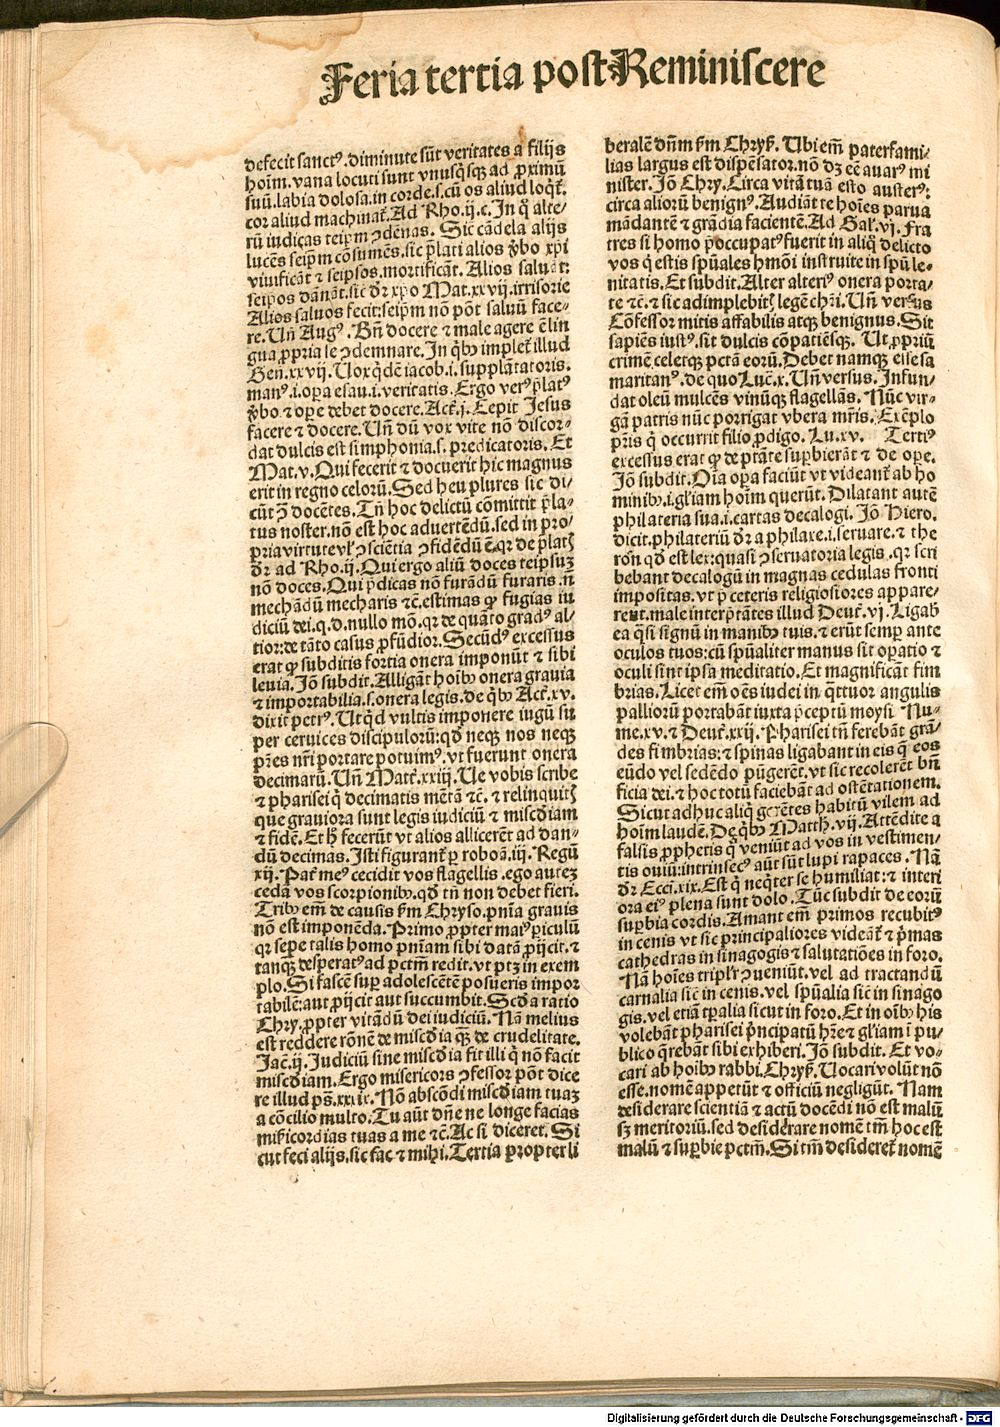 Feria tertia post Reminiscere
defecit sanct⁹. diminute sūt veritates a filijs
hoīm. vana locuti sunt vnusq̄sqȝ ad ꝓximū
suū. labia dolosa. in corde .s. cū os aliud loq̄t̄.
cor aliud machinat̄. Ad Rho. ij. c. In q̊ alte/
rū iudicas teipm ꝯdēnas. Sic cādela alijs
lucēs seipm cōsumēs. sic p̄lati alios v̄bo xp̄i
viuificāt ⁊ seipsos. mortificāt. Alios saluāt:
seipos dānāt. sic dr̄ xp̄o Mat. xxvij. irrisorie
Alios saluos fecit: seipm nō pōt saluū face-
re. Uñ Aug⁹. Bñ docere ⁊ male agere ē lin
gua ꝓpria se ꝯdemnare. In q̄bꝰ implet̄ illud
Gen. xxvij. Uox q̄dē iacob .i. supplātatoris.
man⁹ .i. opa esau .i. veritatis. Ergo ver⁹ p̄lat⁹
v̄bo ⁊ ope debet docere. Act̄. j. Cepit Jesus
facere ⁊ docere. Uñ dū vox vite nō discor-
dat dulcis est simphonia .s. predicatoris. Et
Mat. v. Qui fecerit ⁊ docuerit hic magnus
erit in regno celorū. Sed heu plures sic di-
cūt ꝙ docētes. Tñ hoc delictū cōmittit p̄la-
tus noster. nō est hoc aduertēdū. sed in pro/
pria virtute vl̓ ꝯsciētia ꝯfidēdū ē. qr de p̄latꝭ
dr̄ ad Rho. ij. Qui ergo aliū doces teipsuȝ
nō doces. Qui p̄dicas nō furādū furaris. ñ
mechādū mecharis ⁊c̄. estimas ꝙ fugias iu
diciū dei. q. d. nullo mō. qr de quāto grad⁹ al-
tior: de tāto casus ꝓfūdior. Secūd⁹ excessus
erat ꝙ subditis fortia onera imponūt ⁊ sibi
leuia. Jō subdit. Alligāt hoībꝰ onera grauia
⁊ importabilia .s. onera legis. de q̄bꝰ Act̄. xv.
dixit petr⁹. Ut qd̄ vultis imponere iugū su
per ceruices discipulorū: qd̄ neqȝ nos neqȝ
pr̄es nr̄i portare potuim⁹. vt fuerunt onera
decimarū. Uñ Matt̄. xxiij. Ue vobis scribe
⁊ pharisei q̄ decimatis mētā ⁊c̄. ⁊ relinquitꝭ
que grauiora sunt legis iudiciū ⁊ miscd̓iam
⁊ fidē. Et h̄ fecerūt vt alios allicerēt ad dan-
dū decimas. Isti figurant̄ ꝑ roboā. iij. Regū
xij. Pat̄ me⁹ cecidit vos flagellis. ego auteȝ
cedā vos scorpionibꝰ. qd̄ tñ non debet fieri.
Tribꝰ em̄ de causis s̓m Chryso. pñia grauis
nō est imponēda. Primo ꝓpter mai⁹ ꝑiculū
qr sepe talis homo pñiam sibi datā ꝓijcit. ⁊
tanqȝ desperat⁹ ad pctm̄ redit. vt ptȝ in exem
plo. Si fascē supꝰ adolescētē posueris impor
tabilē: aut ꝓijcit aut succumbit. Scd̓a ratio
Chry. ꝓpter vitādū dei iudiciū. Nā melius
est reddere rōnē de miscd̓ia qȝ̄ de crudelitate.
Jac̄. ij. Judiciū sine miscd̓ia fit illi q̄ nō facit
miscd̓iam. Ergo misericors ꝯfessor pōt dice
re illud ps̄. xxxix. Nō abscōdi miscd̓iam tuaȝ
a cōcilio multo. Tu aūt dñe ne longe facias
mis̓icordias tuas a me ⁊c̄. Ac si diceret. Si
cut feci alijs. sic fac ⁊ mihi. Tertia propter li
beralē dñm s̓m Chrys̓. Ubi em̄ paterfami-
lias largus est dispēsator. nō dȝ eē auar⁹ mi
nister. Jō Chry. Circa vitā tuā esto auster⁹:
circa aliorū benign⁹. Audiāt te hoīes parua
mādantē ⁊ grādia facientē. Ad Gal̓. vj. Fra
tres si homo p̄occupat⁹ fuerit in aliq̊ delicto
vos q̄ estis sp̄uales hmōi instruite in sp̄u le-
nitatis. Et subdit. Alter alteri⁹ onera porta-
te ⁊c̄. ⁊ sic adimplebitꝭ legē ch̄ri. Uñ versus
Cōfessor mitis affabilis atqȝ benignus. Sit
sapiēs iust⁹. sit dulcis cōpatiēsqȝ. Ut ꝓpriū
crimē. celetqȝ pctā eorū. Debet namqȝ esse sa
maritan⁹. de quo Luc̄. x. Uñ versus. Infun/
dat oleū mulcēs vinūqȝ flagellās. Nūc vir-
gā patris nūc porrigat vbera mr̄is. Exēplo
pr̄is q̄ occurrit filio ꝓdigo. Lu. xv. Terti⁹
excessus erat ꝙ de ptāte supbierāt ⁊ de ope.
Jō subdit. Oīa opa faciūt vt videant̄ ab ho
minibꝰ .i. gl̓iam hoīm querūt. Dilatant autē
philateria sua .i. cartas decalogi. Jō Hiero.
dicit. philateriū dr̄ a philaxe .i. seruare. ⁊ the
ron qd̄ est lex: quasi ꝯseruatoria legis. qr scri
bebant decalogū in magnas cedulas fronti
impositas. vt p̄ ceteris religiosiores appare-
rent. male interp̄tātes illud Deut̄. vj. Ligab̓
ea q̄si signū in manibꝰ tuis. ⁊ erūt semp ante
oculos tuos: cū sp̄ualiter manus sit opatio ⁊
oculi sint ipsa meditatio. Et magnificāt fim
brias. Licet em̄ oēs iudei in q̄ttuor angulis
palliorū portabāt iuxta p̄ceptū moysi Nu-
me. xv. ⁊ Deut̄. xxij. Pharisei tñ ferebāt grā-
des fimbrias: ⁊ spinas ligabant in eis q̄ eos
eūdo vel sedēdo pūgerēt. vt sic recolerēt bñ
ficia dei. ⁊ hoc totū faciebāt ad ostētationem.
Sicut adhuc aliq̄ gerētes habitū vilem ad
hoīm laudē. De q̄bꝰ Matth̄. vij. Attēdite a
falsis ꝓphetis q̄ veniūt ad vos in vestimen/
tis ouiū: intrinsec⁹ aūt sūt lupi rapaces. Nā
dr̄ Ecci. xix. Est q̄ neq̄ter se humiliat: ⁊ interi
ora ei⁹ plena sunt dolo. Tūc subdit de eorū
supbia cordis. Amant em̄ primos recubit⁹
in cenis vt sic principaliores videāt̄ ⁊ p̄mas
cathedras in sinagogis ⁊ salutatiōes in foro.
Nā hoīes tripl̓r ꝯueniūt. vel ad tractandū
carnalia sic̄ in cenis. vel sp̄ualia sic̄ in sinago
gis. vel etiā tꝑalia sicut in foro. Et in oībꝰ his
volebāt pharisei p̄ncipatū hr̄e ⁊ gl̓iam ī pu-
blico q̄rebāt sibi exhiberi. Jō subdit. Et vo-
cari ab hoībꝰ rabbi. Chrys̓. Uocari volūt nō
esse. nomē appetūt ⁊ officiū negligūt. Nam
desiderare scientiā ⁊ actū docēdi nō est malū
sȝ meritoriū. sed desiderare nomē tm̄ hoc est
malū ⁊ supbie pctm̄. Si tm̄ desideret̄ nomē
Digitalisierung gefördert durch die Deutsche Forschungsgemeinschaft - DFG